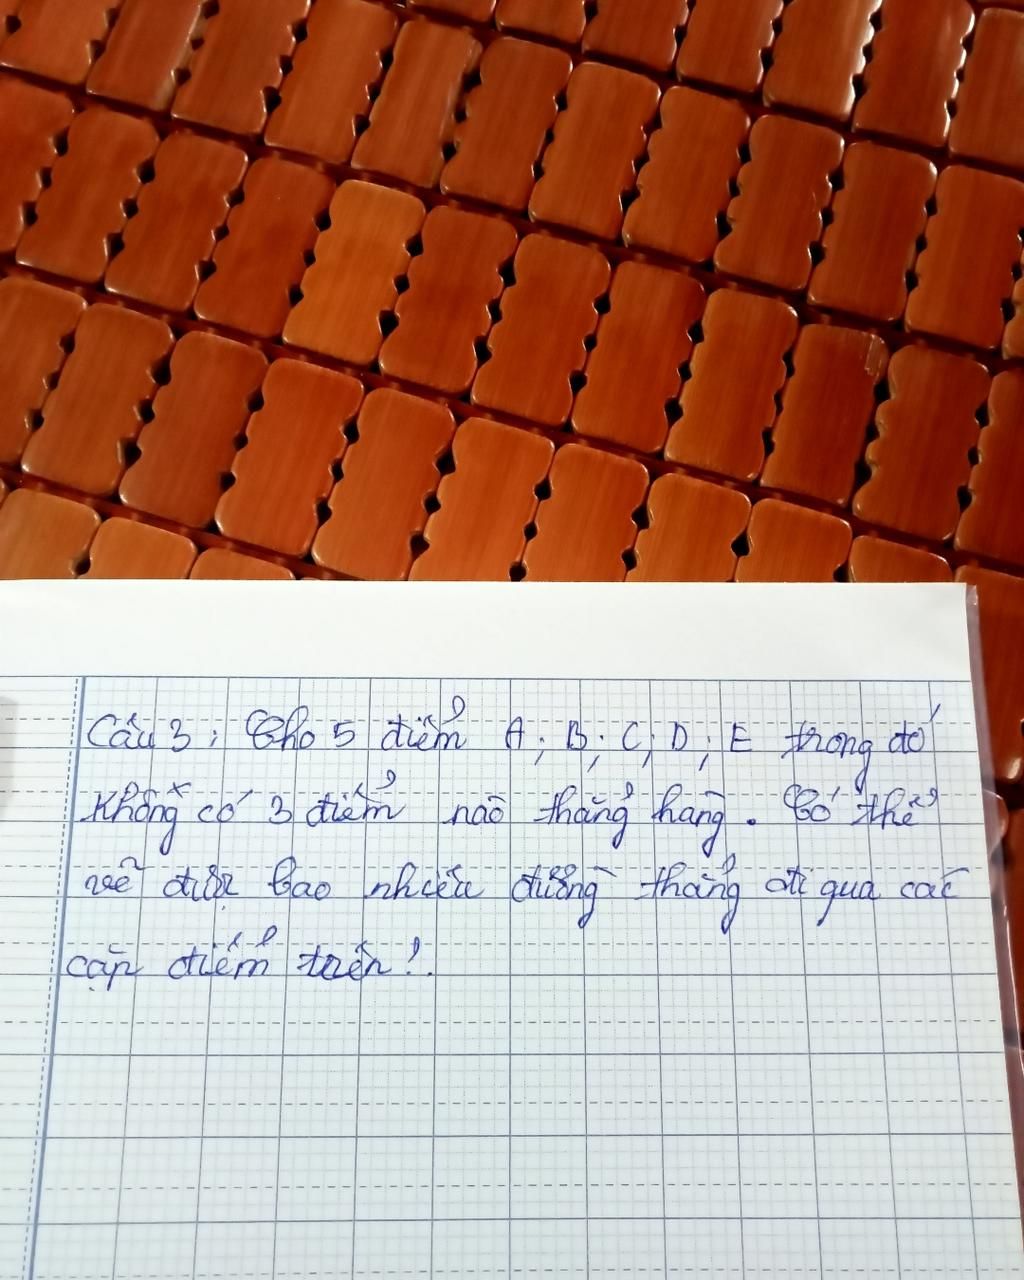 Câu 3: Cho 5 điểm A; B; C; D; E trong đó
không có 3 điểm nào thẳng hàng. Có thể
vẽ được bao nhiêu đường thẳng đi qua các
cặp điểm trên?.